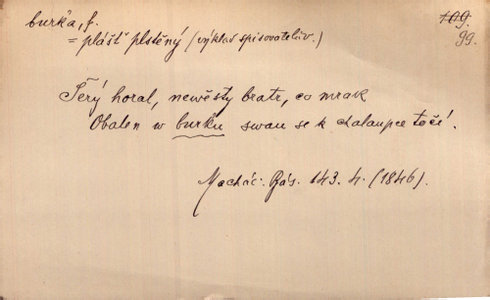 burka, f.
109.
= plášť plstěný (výklad spisovatelův.)
99.
Šerý horal, newěsty bratr, co mrak
Obalen w burku swau se k chalaupce točí.
Macháč. Bás. 143. 4. (1846).